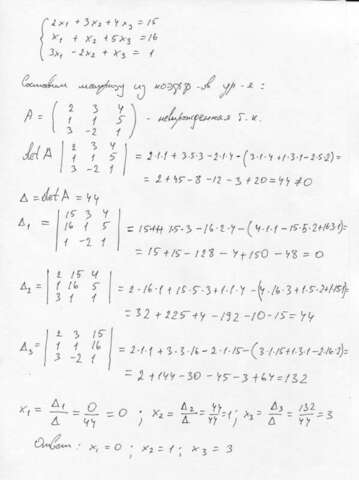 2x₁ + 3x₂ + 4x₃ = 15
x₁ + x₂ + 5x₃ = 16
3x₁ - 2x₂ + x₃ = 1
Составим матрицу из коэфф-в ур-я:
A = ( 2 3 4
1 1 5
3 -2 1 ) - невырожденная т.к.
det A | 2 3 4
1 1 5
3 -2 1 | = 2·1·1 + 3·5·3 - 2·1·4 - (3·1·4 + 1·3·1 - 2·5·2) =
= 2 + 45 - 8 - 12 - 3 + 20 = 44 ≠ 0
Δ = det A = 44
Δ₁ = | 15 3 4
16 1 5
1 -2 1 | = 15·1·1 + 1·5·3 - 16·2·4 - (4·1·1 - 15·5·2 + 16·3·1) =
= 15 + 15 - 128 - 4 + 150 - 48 = 0
Δ₂ = | 2 15 4
1 16 5
3 1 1 | = 2·16·1 + 15·5·3 + 1·1·4 - (4·16·3 + 1·5·2 + 1·15·1) =
= 32 + 225 + 4 - 192 - 10 - 15 = 44
Δ₃ = | 2 3 15
1 1 16
3 -2 1 | = 2·1·1 + 3·3·16 - 2·1·15 - (3·1·15 + 1·3·1 - 2·16·2) =
= 2 + 144 - 30 - 45 - 3 + 64 = 132
x₁ = Δ₁/Δ = 0/44 = 0 ; x₂ = Δ₂/Δ = 44/44 = 1 ; x₃ = Δ₃/Δ = 132/44 = 3
Ответ: x₁ = 0 ; x₂ = 1 ; x₃ = 3